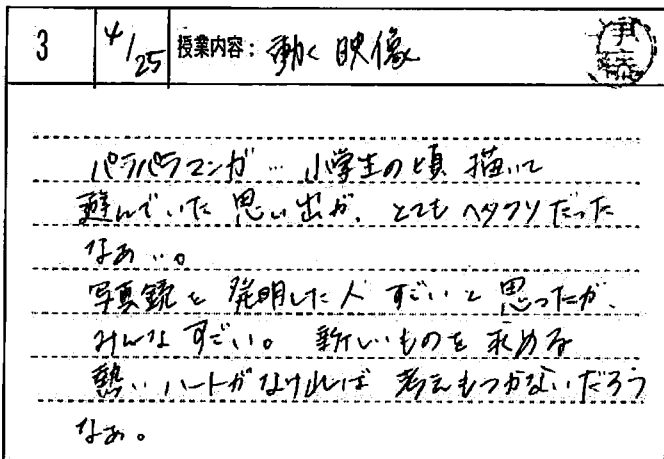 3 4/25 授業内容: 動く映像
パラパラマンガ… 小学生の頃 描いて
遊んでいた 思い出が、とてもヘタクソだった
なぁ…。
写真銃を 発明した人 すごいと 思ったが、
みんな すごい。 新しいものを 求める
熱いハートがなければ 考えもつかないだろう
なぁ。